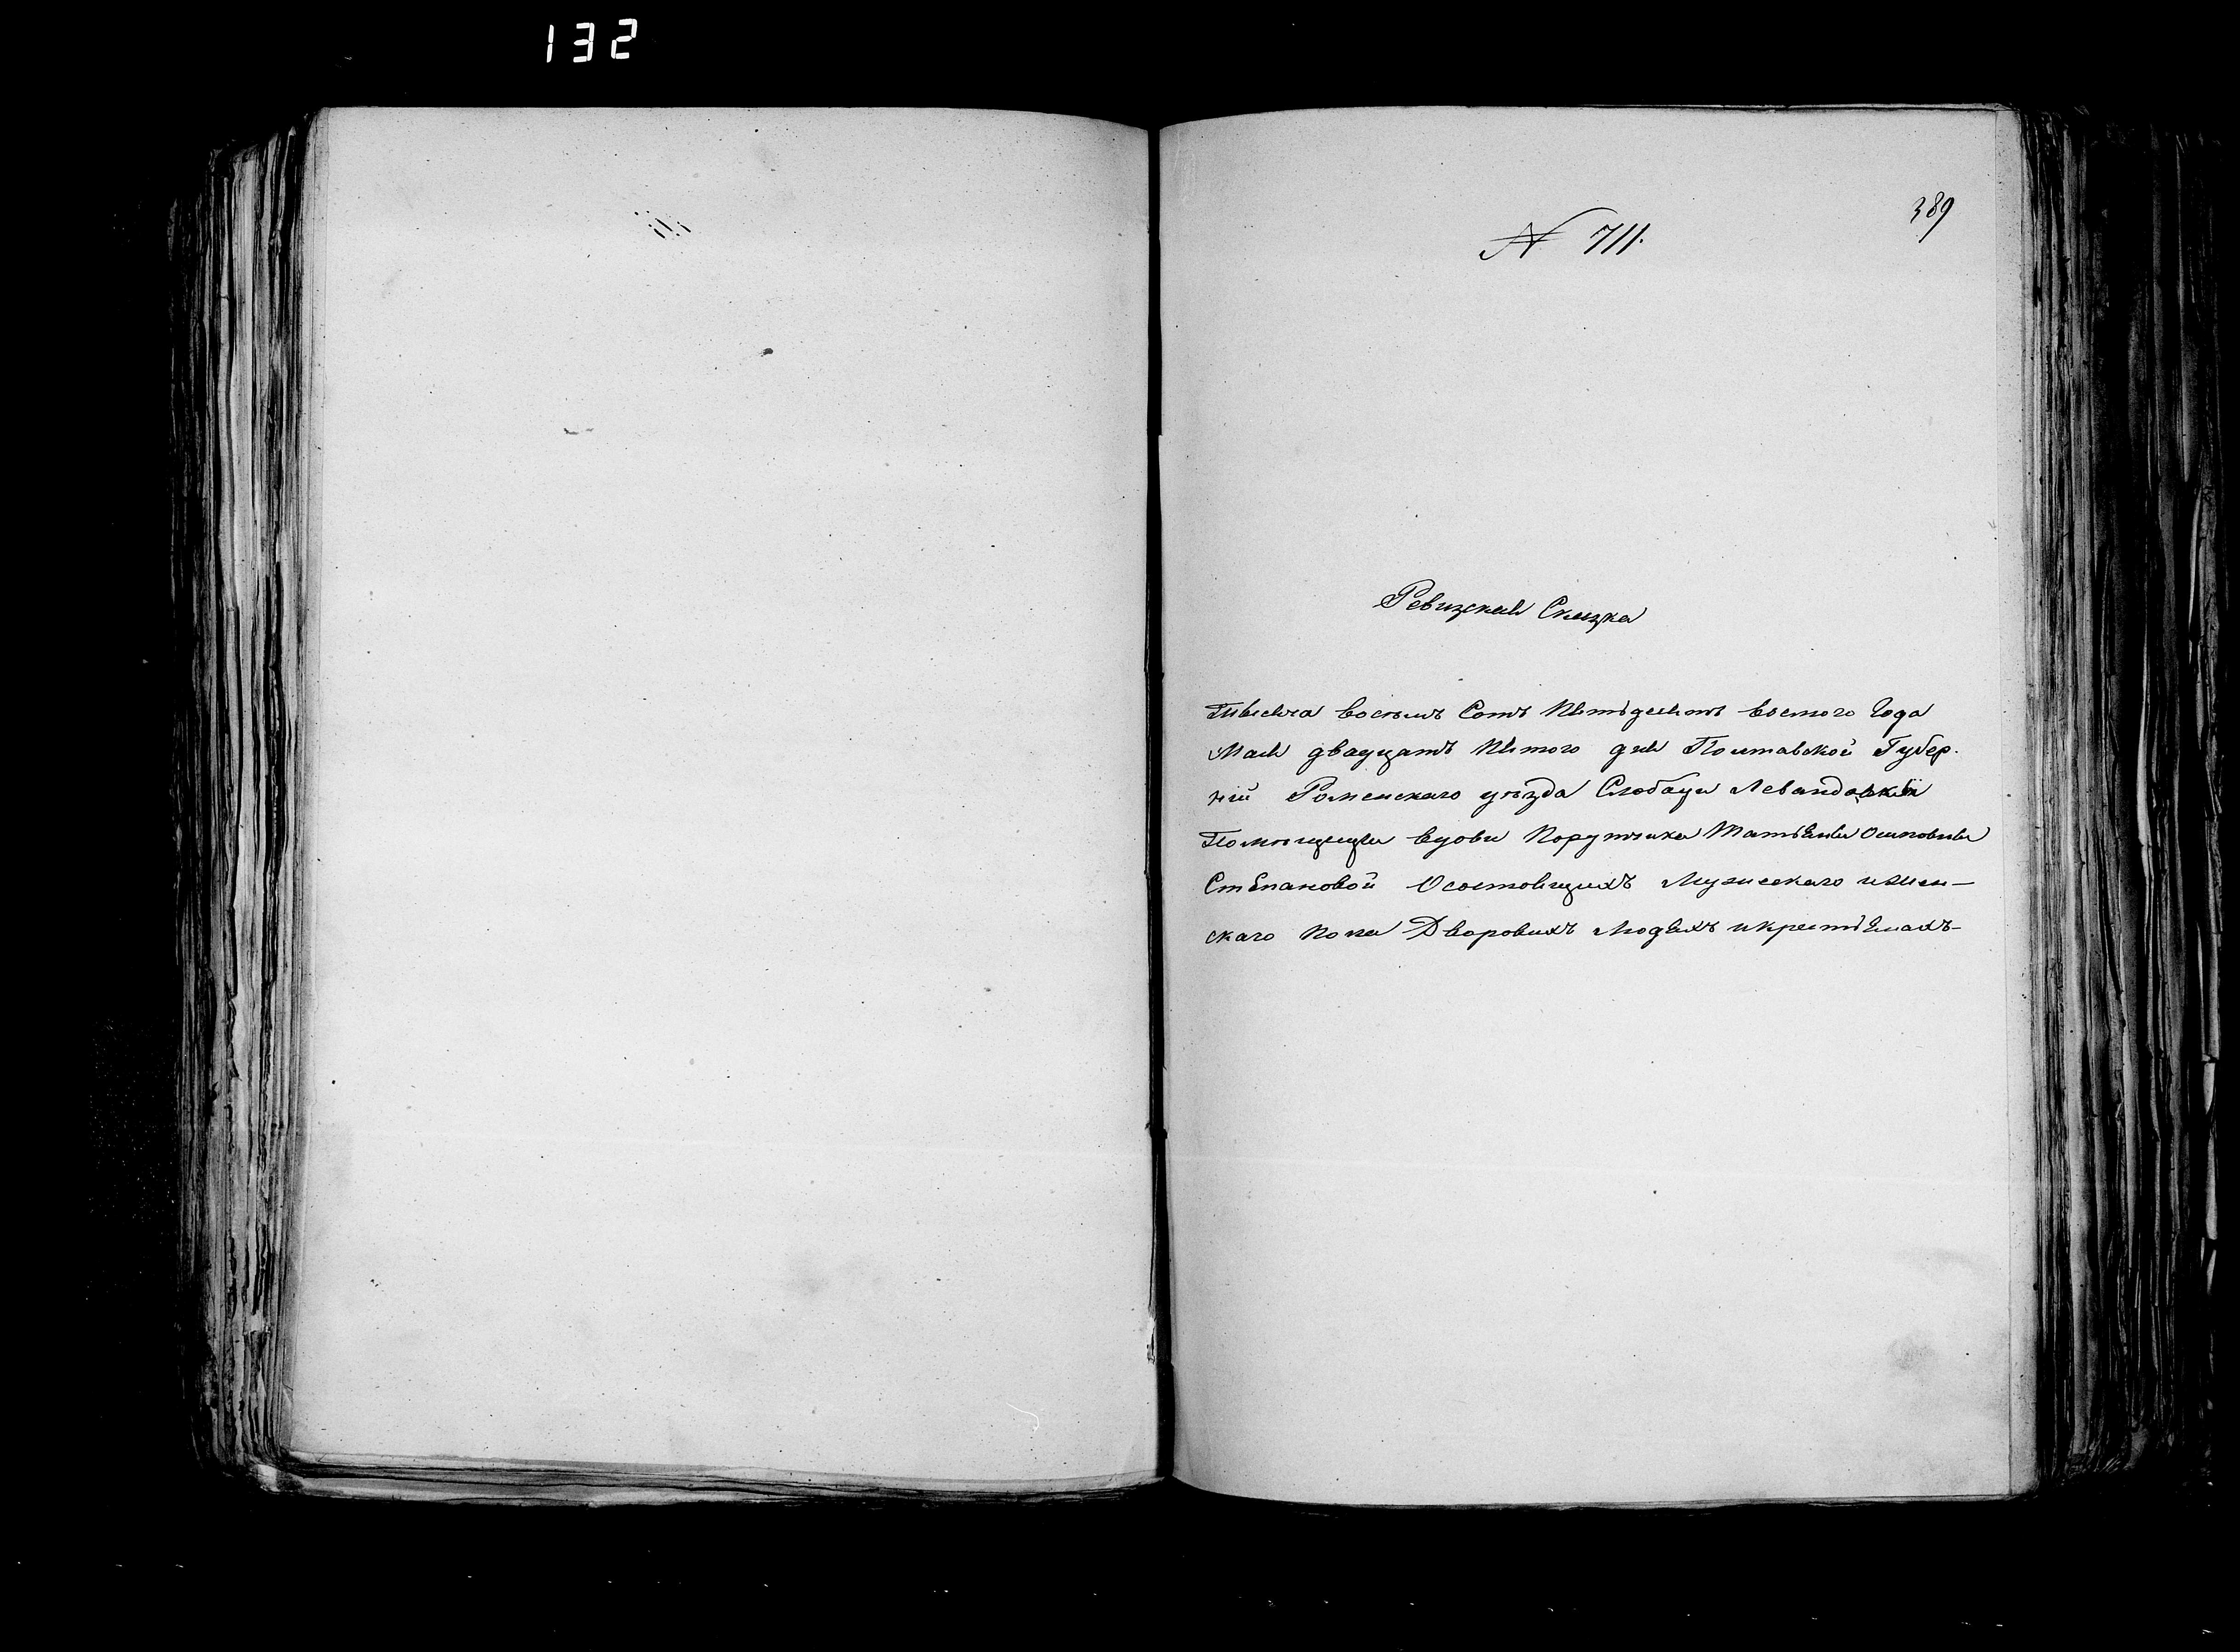 132
389
N 711.
Ревизская Сказка
Тысяча восемь Сотъ Пятьдесятъ восмого Года
Мая двадцать Пятого дня Полтавской Губер.
ніи Роменскаго уѣзда Слободи Левандовки
Помѣщици вдови Порутчика Татьяни Осиповни
Степановой Осостоящихъ Мужескаго иЖен-
скаго Пола Дворовихъ Людяхъ икрестьянахъ-